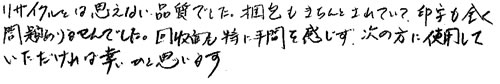 リサイクルとは思えない品質でした。梱包もきちんとされていて、印字も全く
問題ありませんでした。回収面も特に手間を感じず、次の方に使用して
いただければ幸いかと思います